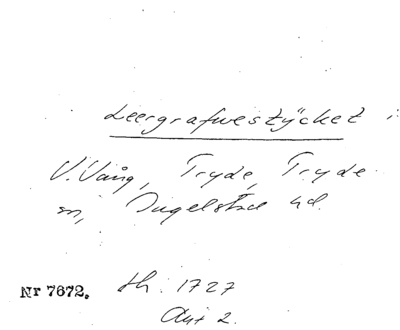 Leergrafwestÿcket i
V. Vång, Tryde, Tryde
sn, Ingelstad hd.
Nr 7672. th. 1727
Akt 2.